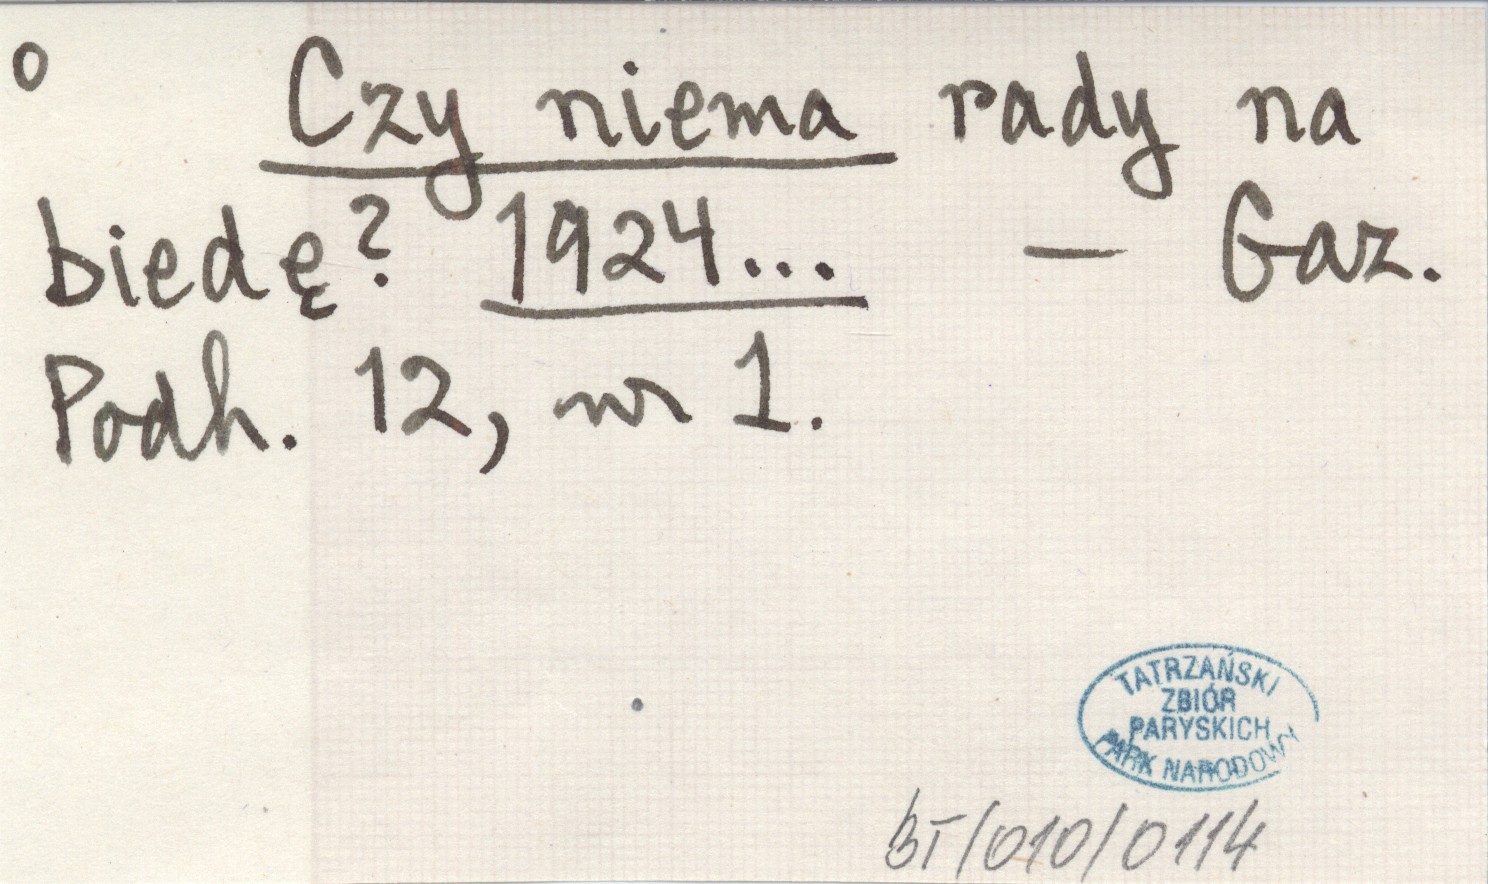 o Czy niema rady na
biedę? 1924... — Gaz.
Podh. 12, nr 1.
TATRZAŃSKI
ZBIÓR
PARYSKICH
PARK NARODOWY
BT/010/0114